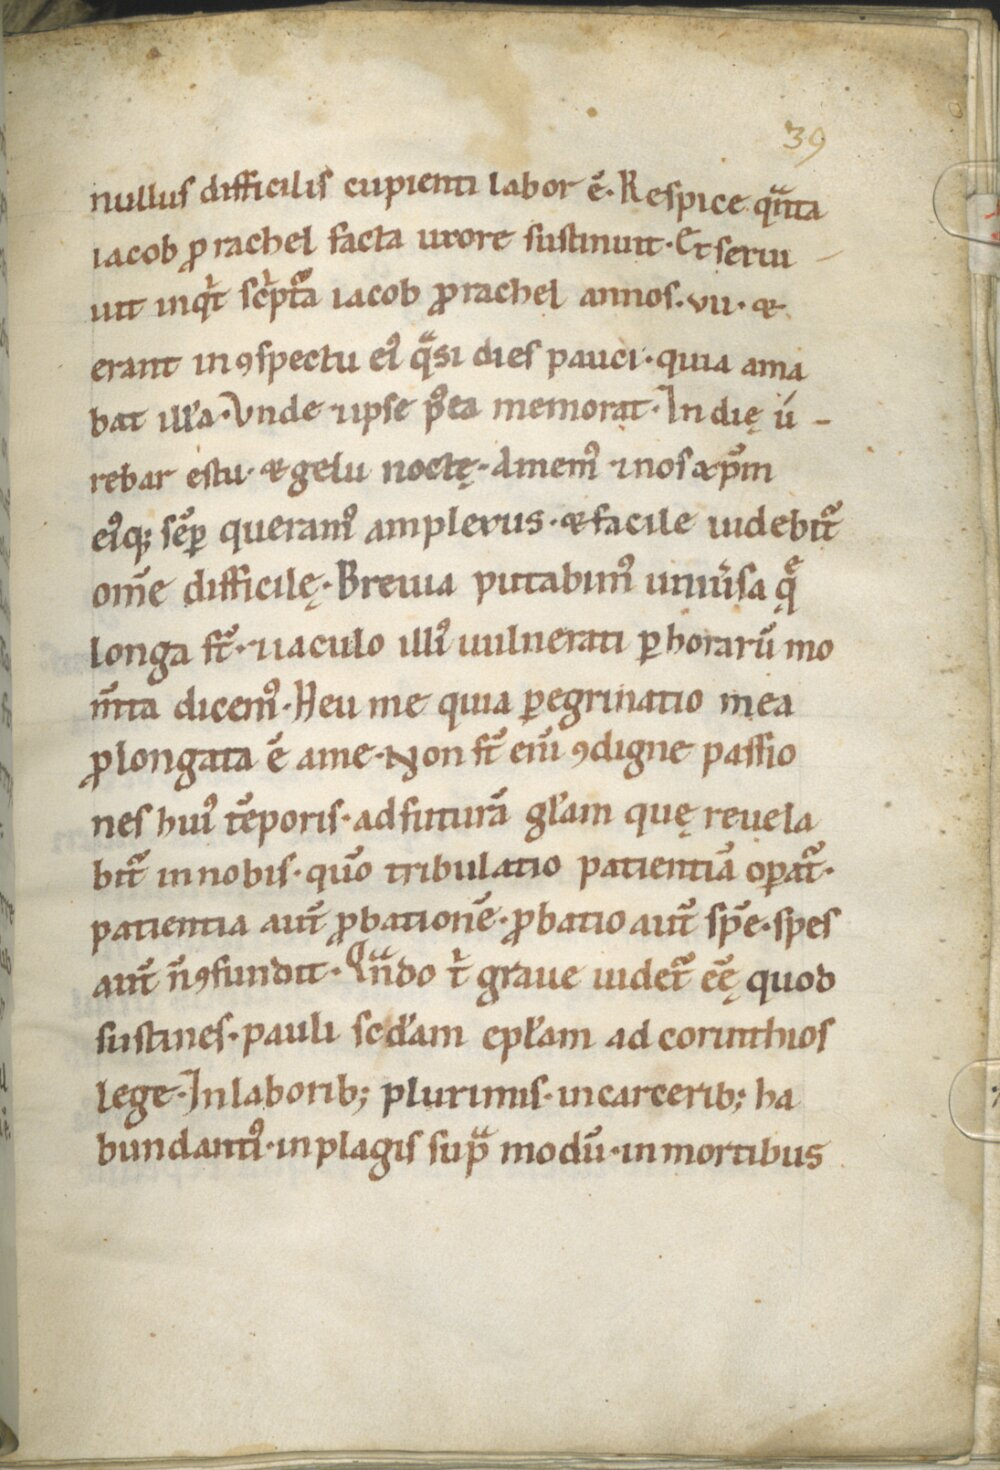 39
nullus difficilis cupienti labor ē. Respice qͣnta
iacob ꝓ rachel facta uxore sustinuit. Et serui
uit inqͥt scͥptᷓa iacob ꝓ rachel annos. vii. &
erant in ꝯspectu eiꝰ qͣsi dies pauci. quia ama
bat ill̓a. Vnde ⁊ ipse pꝰea memorat. In dię ú-
rebar estu. & gelu noctę. Amemꝰ ⁊ nos xp̄m
eiꝰq; sēꝑ queramꝰ amplexus. & facile uidebit᷑
om̄e difficilę. Breuia putabimꝰ uniu͛sa q̨ͤ
longa st̄. ⁊ iaculo illiꝰ uulnerati ꝑ horarū mo
m̄ta dicemꝰ. Heu me quia ꝑegrinatio mea
ꝓlongata ē a me. Non st̄ eni̅ ꝯdigne passio
nes huiꝰ tēporis. ad futurā gl̓am quę reuela
bit᷑ in nobis. quō tribulatio patientiā oꝑat᷑.
patientia aut̄ ꝓbationē. ꝓbatio aut̄ spē. spes
aut̄ n̄ ꝯfundit. Qͣndo tͥ graue uidet᷑ eę̄ quod
sustines. pauli scd̓am epl̓am ad corinthios
lege. In laborib; plurimis. in carcerib; ha
bundantiꝰ. in plagis supͣ modū. in mortibus